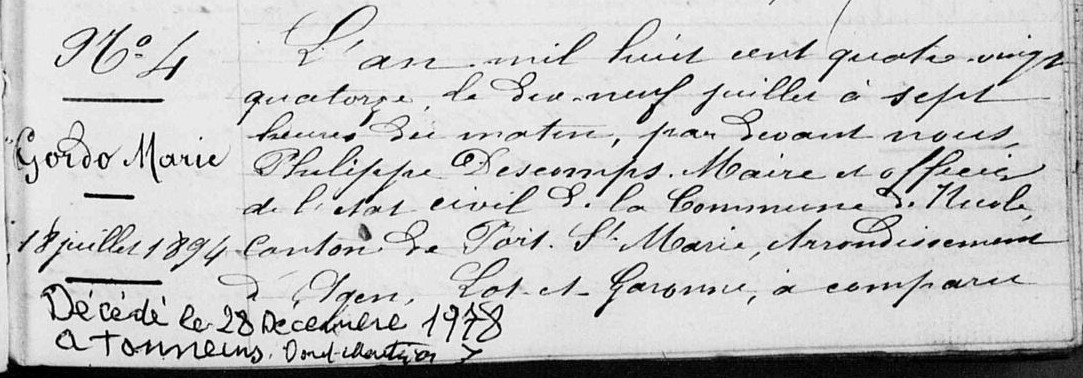 N° 4
Gordo Marie
18 juillet 1894
Décédé le 28 Decembre 1978
a Tonneins.
L'an mil huit cent quatre-vingt
quatorze, le dix-neuf juillet à sept
heures du matin, par devant nous,
Philippe Descomps. Maire et officier
de l'état civil de la Commune de Nicole,
canton de Port. Ste Marie, Arrondissement
d'Agen, Lot-et-Garonne, a comparu